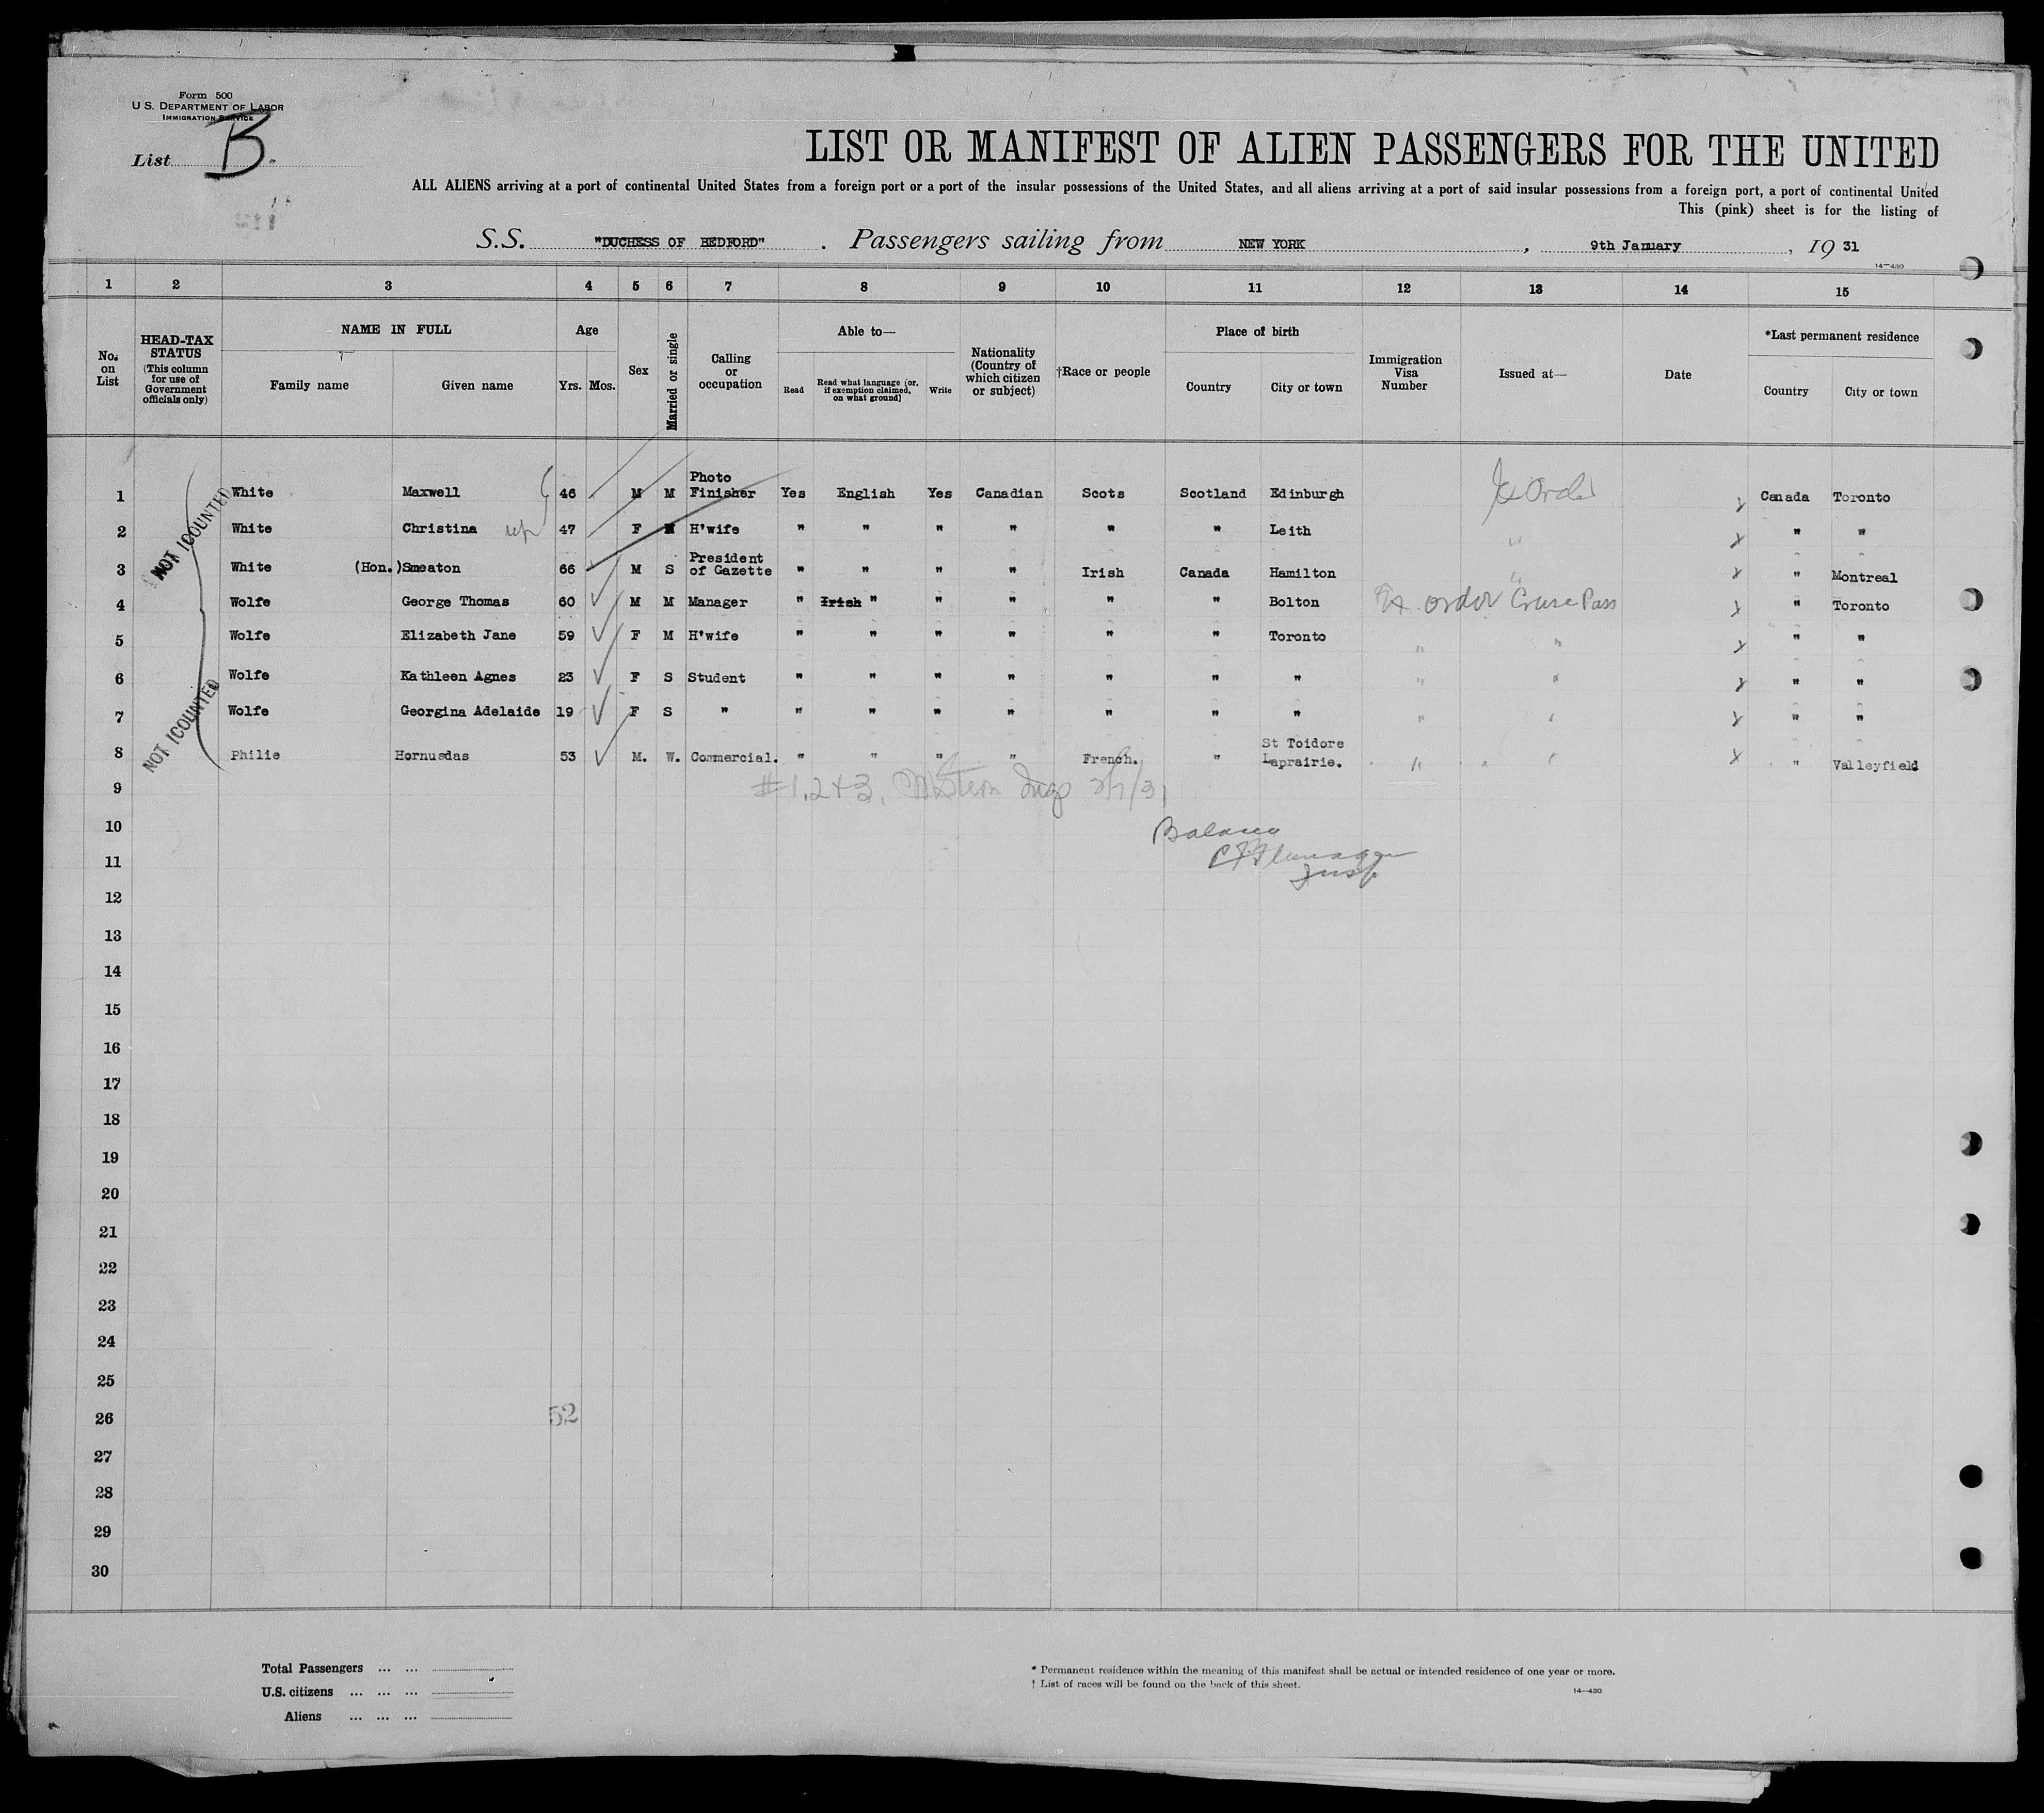 Form 500
U.S. DEPARTMENT OF LABOR
IMMIGRATION SERVICE
List B.
LIST OR MANIFEST OF ALIEN PASSENGERS FOR THE UNITED
ALL ALIENS arriving at a port of continental United States from a foreign port or a port of the insular possessions of the United States, and all aliens arriving at a port of said insular possessions from a foreign port, a port of continental United
This (pink) sheet is for the listing of
S.S. "DUCHESS OF BEDFORD" . Passengers sailing from NEW YORK , 9th January , 19 31
14—430
1 2 3 4 5 6 7 8 9 10 11 12 13 14 15
No. on List
HEAD-TAX STATUS (This column for use of Government officials only)
NAME IN FULL Family name Given name
Age Yrs. Mos.
Sex
Married or single
Calling or occupation
Able to— Read Read what language [or, if exemption claimed, on what ground] Write
Nationality (Country of which citizen or subject)
†Race or people
Place of birth Country City or town
Immigration Visa Number
Issued at—
Date
*Last permanent residence Country City or town
NOT COUNTED
1 White Maxwell 46 M M Photo Finisher Yes English Yes Canadian Scots Scotland Edinburgh Canada Toronto
2 White Christina 47 F M H'wife " " " " " " Leith " "
3 White (Hon.) Smeaton 66 M S President of Gazette " " " " Irish Canada Hamilton " Montreal
4 Wolfe George Thomas 60 M M Manager " Irish " " " " " Bolton Ex order Cruise Pass " Toronto
5 Wolfe Elizabeth Jane 59 F M H'wife " " " " " " Toronto " " " "
6 Wolfe Kathleen Agnes 23 F S Student " " " " " " " " " " "
7 Wolfe Georgina Adelaide 19 F S " " " " " " " " " " " "
NOT COUNTED
8 Philie Hornusdas 53 M. W. Commercial. " " " " French. " St Toidore Laprairie. " " " " Valleyfield
9 #1, 2 + 3,
10 Balance
11
Insp.
12
13
14
15
16
17
18
19
20
21
22
23
24
25
26 52
27
28
29
30
Total Passengers ... ...
U.S. citizens ... ... ...
Aliens ... ... ...
* Permanent residence within the meaning of this manifest shall be actual or intended residence of one year or more.
† List of races will be found on the back of this sheet.
14—430